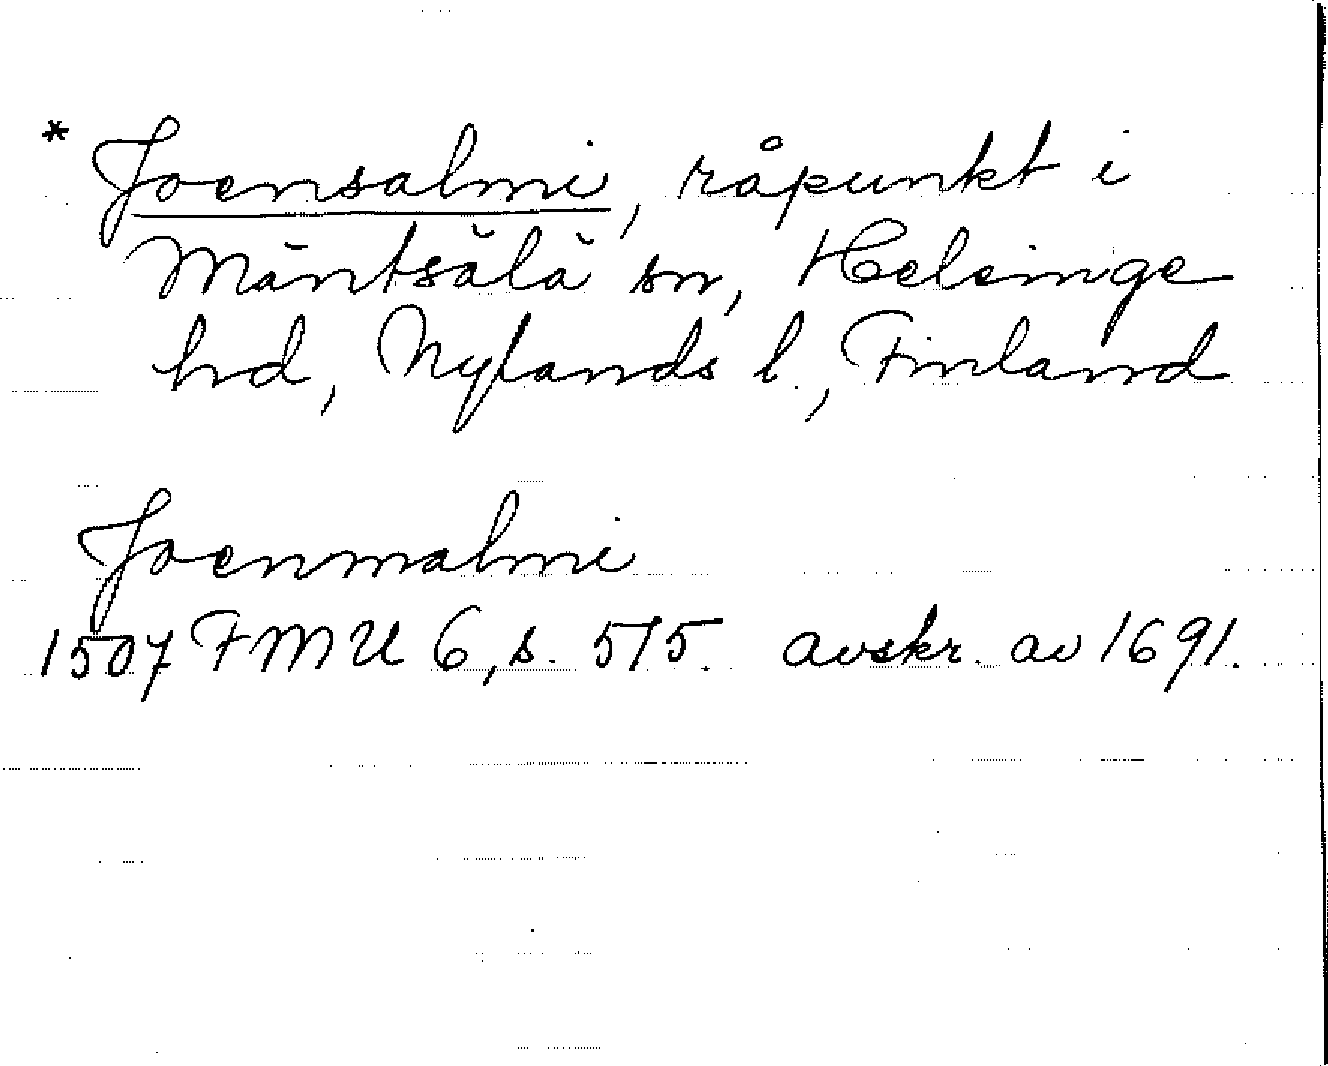 * Joensalmi, råpunkt i
Mäntsälä sn, Helsinge
hd, Nylands l., Finland
Joenmalmi
1507 FMU 6, s. 515. avskr. av 1691.